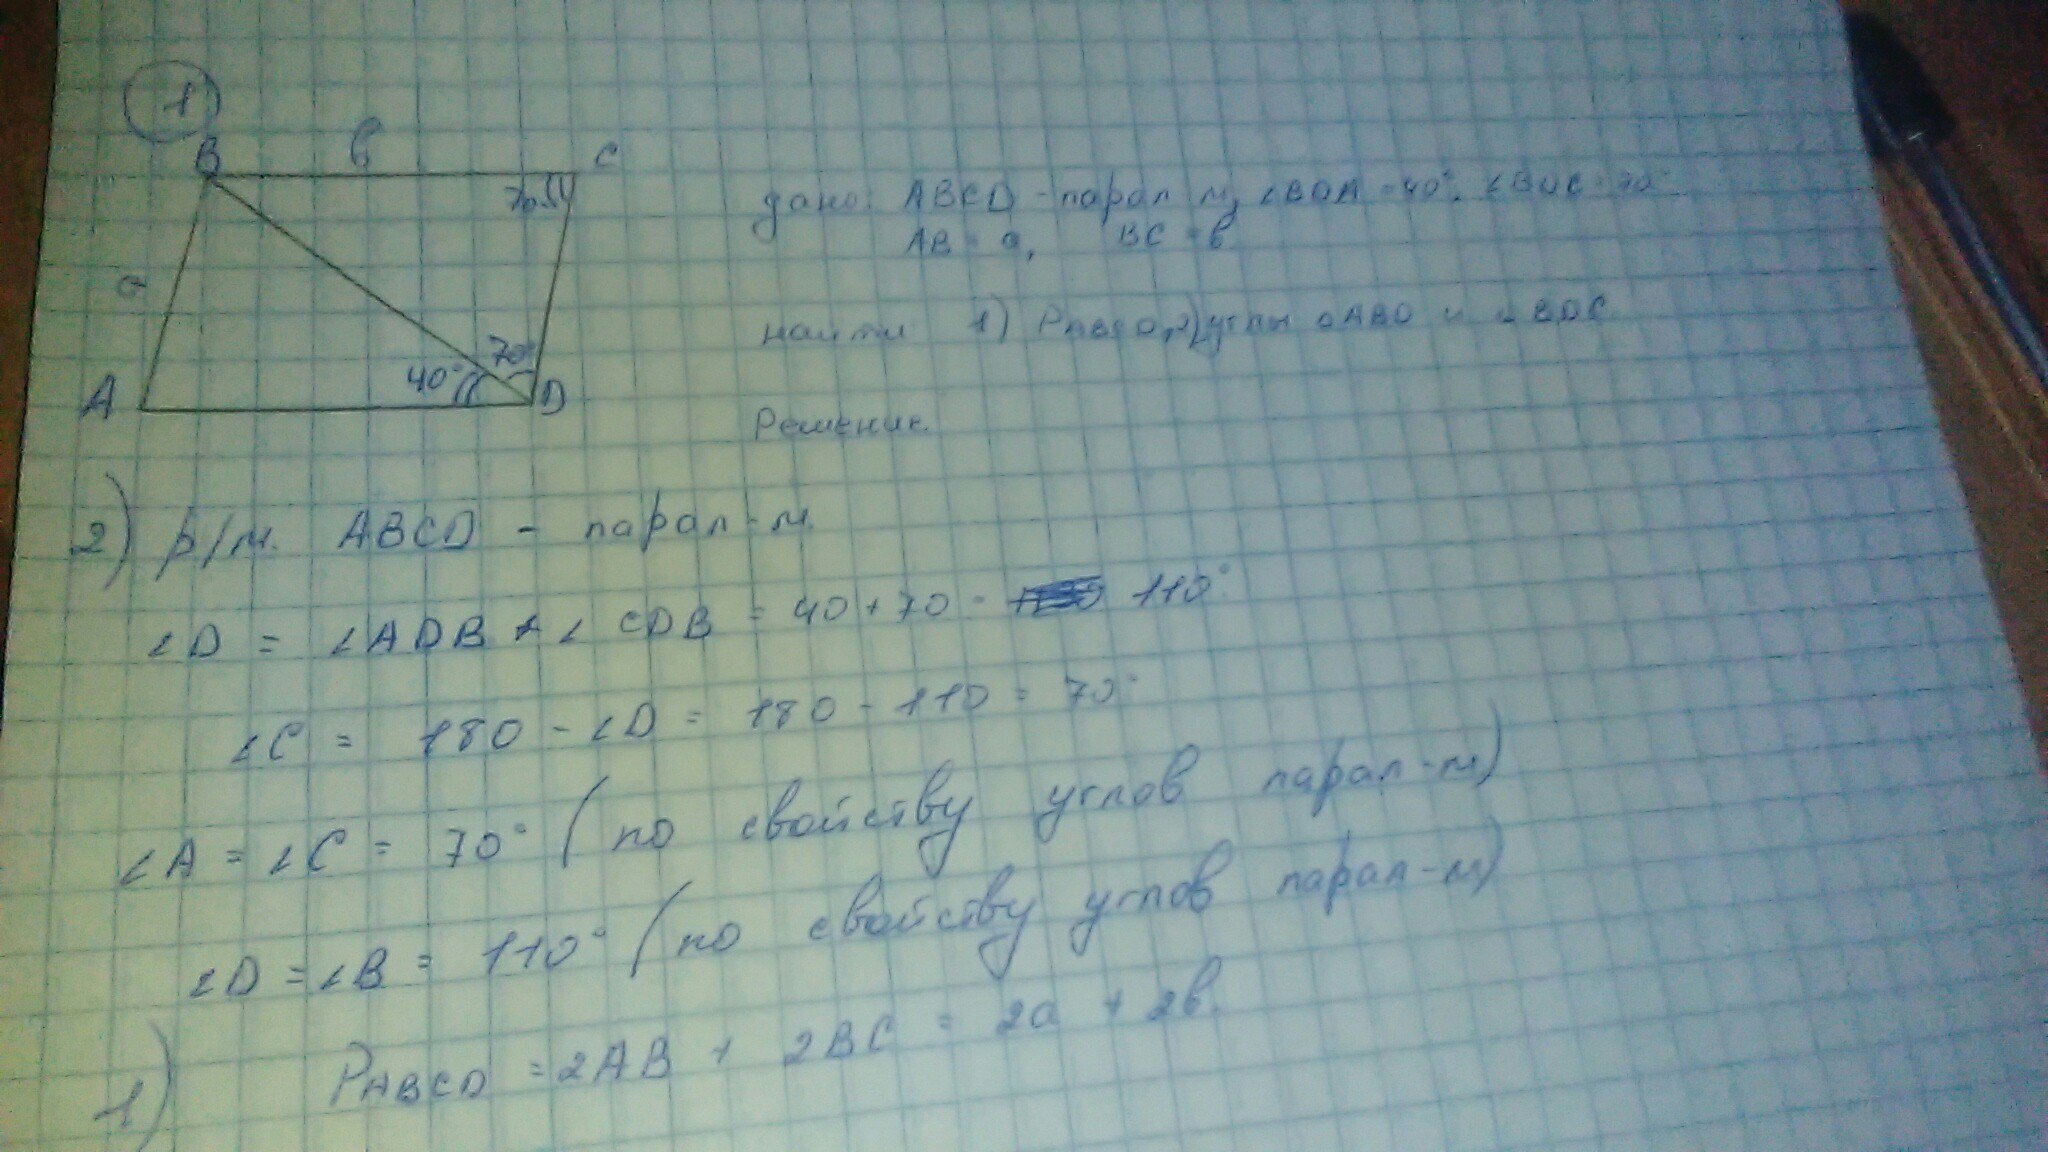 1
B в C
70
дано: ABCD - парал-м, ∠BDA = 40°, ∠BDC = 70°
AB = a, BC = в
a
найти 1) PABCD, 2) углы ΔABD и ΔBDC
70°
40°
A D
Решение.
2) р/м. ABCD - парал-м.
∠D = ∠ADB + ∠CDB = 40 + 70 = 110°
∠C = 180 - ∠D = 180 - 110 = 70°
∠A = ∠C = 70° (по свойству углов парал-м)
∠D = ∠B = 110° (по свойству углов парал-м)
1) PABCD = 2AB + 2BC = 2a + 2в.